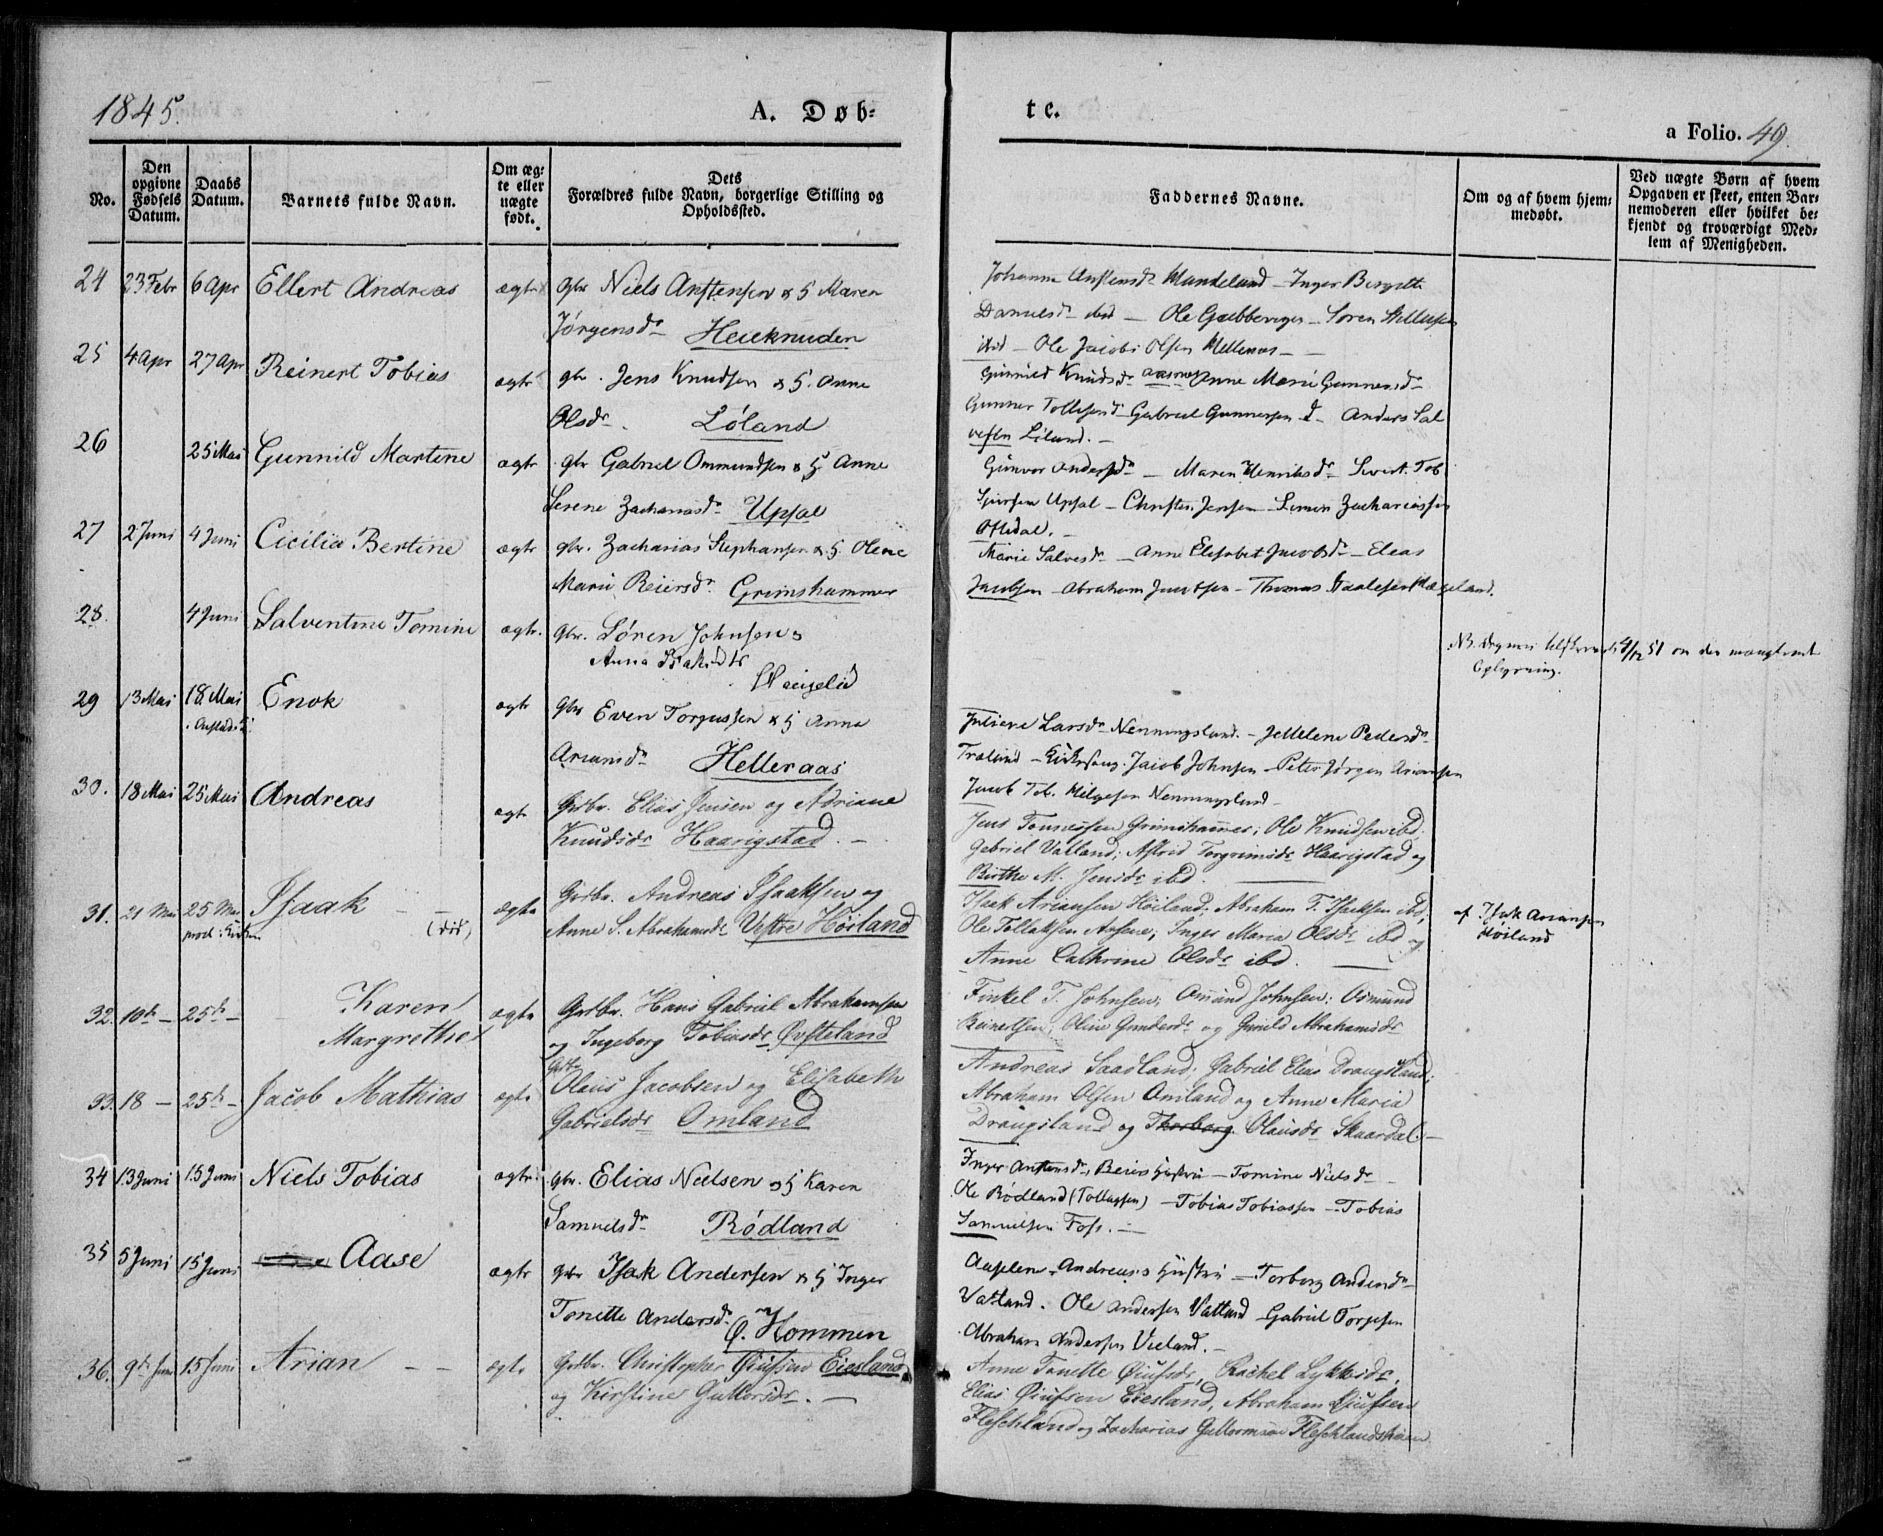 1845.
A. Døb-
te.
a Folio. 49.
No.
Den opgivne Fødsels Datum.
Daabs Datum.
Barnets fulde Navn.
Om æg- te eller uægte født.
Dets Forældres fulde Navn, borgerlige Stilling og Opholdssted.
Faddernes Navne.
Om og af hvem hjem- medøbt.
Ved uægte Børn af hvem Opgaven er skeet, enten Bar- nemoderen eller hvilket be- kjendt og troværdigt Med- lem af Menigheden.
24 23 Febr 6 Apr Ellert Andreas ægte gbr Niels Anstensen & h Maren
Jørgensdr Heieknuden
Johanne Anstensdr Mandeland - Inger Bergitte
Danielsdr ibd - Ole - Søren
ibid - Ole Jacob Olsen
25 4 Apr 27 Apr Reinert Tobias ægte gbr. Jens Knudsen & h. Anne
Olsdr. Løland
Gunnild Knudsdr Anne Marie Gunnersdr
Gunner Tollefsen - Gabriel Gunnersen - Anders Sal
26 25 Mai Gunnild Martine ægte gbr Gabriel Ommundsen & h Anne
Serene Zachariasdr Upsal
Gunvor Andersdr - Maren Henriksdr - Sivert Tob
Upsal - Christen Jensen - Simon Zachariassen
Oftedal. -
27 2 Juni 4 Juni Cicilia Bertine ægte gbr. Zacharias Stephansen & h. Olene
Marie Reiersdr. Grimshammer
Marie Salvesdr - Anne Elisabet Jacobsdr - Elias
Jacobsen - Abraham Jacobsen - Thomas
28. 4 Juni Salventine Tomine ægte. gbr. Søren Johnsen &
Anna
NB. 4/12 51 om den manglende
Oplysning.
29 13 Mai 18 Mai Enok ægte gbr Even Torgussen & h Anna
Ariansdr Helleraas
Juliane Larsdr Nenningsland. - Helene Pedersdr
- Kirkesang. Jacob Johnsen - Peter Jørgen Ariansen
Jacob Tob. Helgesen Nenningsland -
30. 18 Mai 25 Mai Andreas ægte Grdbr. Elias Jensen og Adriane
Knudsdr Haarigstad. -
Jens Tønnessen Grimshammer; Ole Knudsen ibd.
Gabriel Vatland; Astrid Torgrimsdr Haarigstad og
Birthe M. Jensdr ibd.
31. 21 Mai 25 Mai Isaak - ægte Grdbr. Andreas Isaaksen og
Anne S. Abrahamsdr Vestre Høiland
Isak Ariansen Høiland; Abraham T. Isaksen ibd;
Ole Tollaksen; Inger Maria Olsdr ibd og
Anne Cathrine Olsdr ibd.
af Isak Ariansen
Høiland
32. 10de - 25de - Karen
Margrethe ægte Grdbr. Hans Gabriel Abrahamsen
og Ingeborg Tobiasdr Øvsteland
Finkel T. Johnsen; Omund Johnsen; Osmund
Reinertsen; Oline Gundersdr og Gunild Abrahamsdr
33. 18 - 25de - Jacob Mathias ægte Grdbr Olaus Jacobsen og Elisabeth
Gabrielsdr Omland
Andreas Saadland; Gabriel Elias Draugsland;
Abraham Olsen Omland og Anne Maria
Draugsland og Thorborg Olausdr Skaardal -
34 13 Juni 15 Juni Niels Tobias ægte gbr. Elias Nielsen & h Karen
Samuelsdr Rødland
Inger Anstensdr, Reiers Hustru - Tomine Nielsdr -
Ole Rødland (Tollagsen) - Tobias Tobiassen - Tobias
Samuelsen Foss. -
35 5 Juni 15 Juni Aase ægte gbr Isak Andersen & h Inger
Tonette Andersdr Ø. Hommen
Andreas's Hustru - Torborg Andersdr
Vatland. Ole Andersen Vatland - Gabriel Torjesen
Abraham Andersen Vieland. -
36. 9de Juni 15 Juni Arian - - ægte Grdbr. Christopher Øiufsen Eiesland
og Kirstine Guttormsdr. -
Anne Tonette Øiufsdr, Rachel Lykkesdr,
Elias Øiufsen Eiesland, Abraham Øiufsen
Fleschland og Zacharias Guttormsen